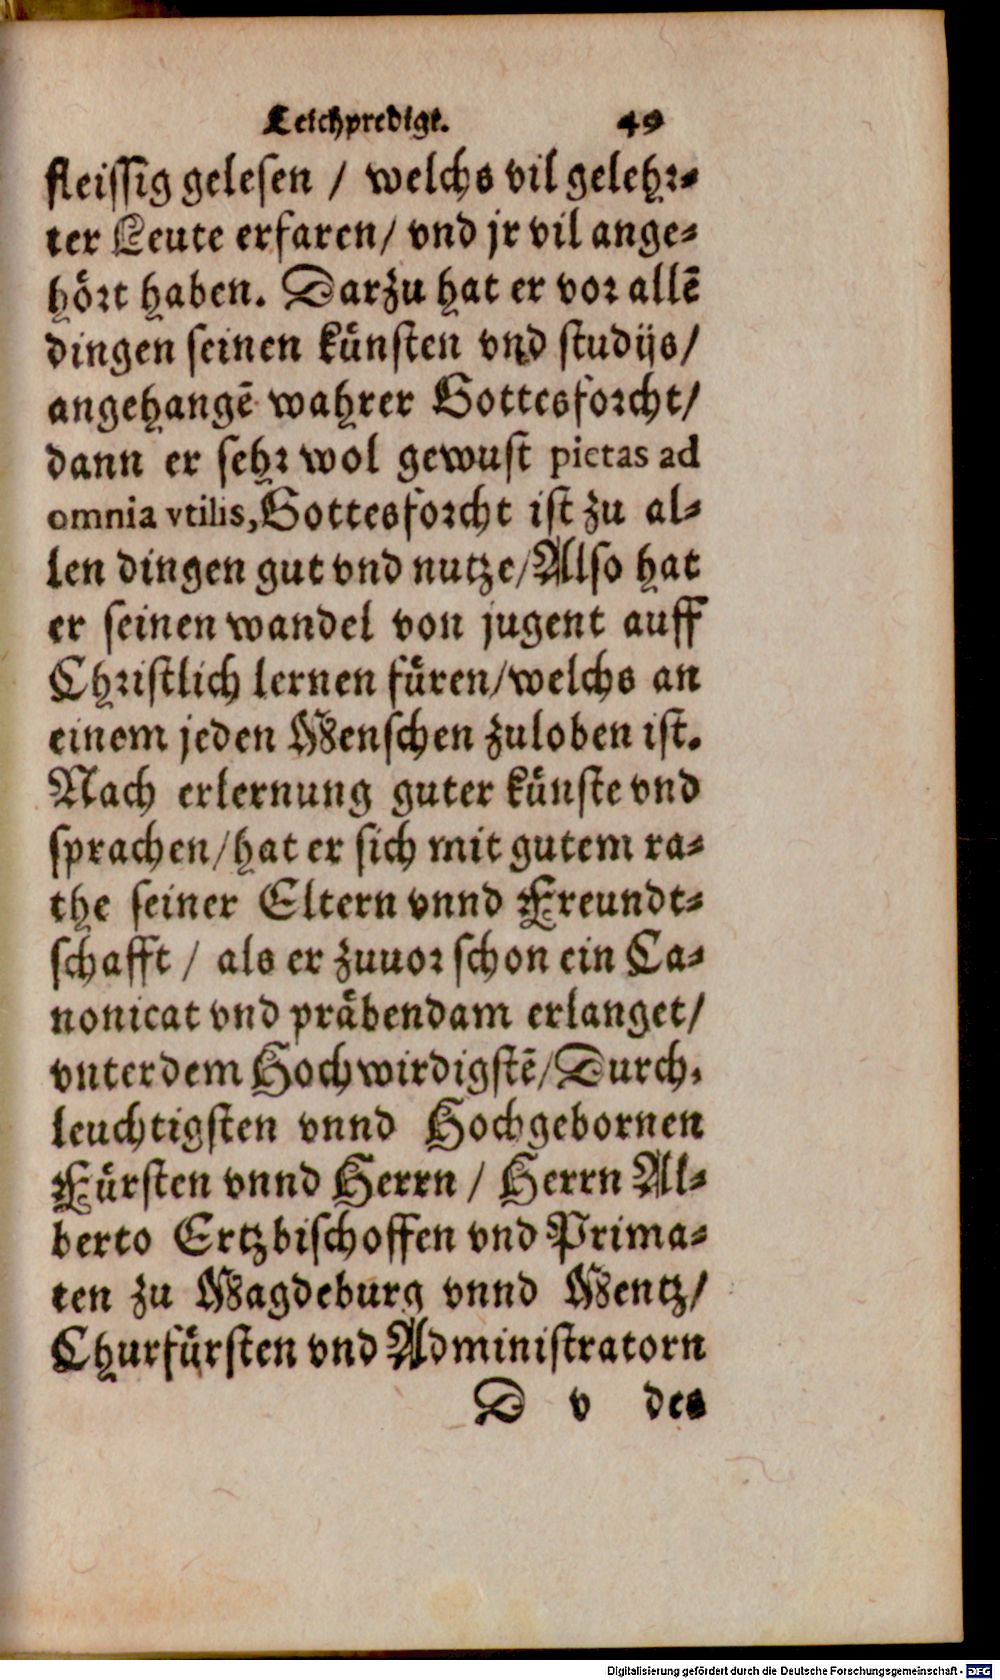 Leichpredigt. 49
fleissig gelesen / welchs vil gelehr-
ter Leute erfaren / vnd jr vil ange-
hört haben. Darzu hat er vor allē
dingen seinen künsten vnd studijs /
angehangē wahrer Gottesforcht /
dann er sehr wol gewust pietas ad
omnia vtilis, Gottesforcht ist zu al-
len dingen gut vnd nutze / Also hat
er seinen wandel von jugent auff
Christlich lernen füren / welchs an
einem jeden Menschen zuloben ist.
Nach erlernung guter künste vnd
sprachen / hat er sich mit gutem ra-
the seiner Eltern vnnd Freundt-
schafft / als er zuuor schon ein Ca-
nonicat vnd präbendam erlanget /
vnter dem Hochwirdigstē / Durch-
leuchtigsten vnnd Hochgebornen
Fürsten vnnd Herrn / Herrn Al-
berto Ertzbischoffen vnd Prima-
ten zu Magdeburg vnnd Mentz /
Churfürsten vnd Administratorn
D v des
Digitalisierung gefördert durch die Deutsche Forschungsgemeinschaft - DFG